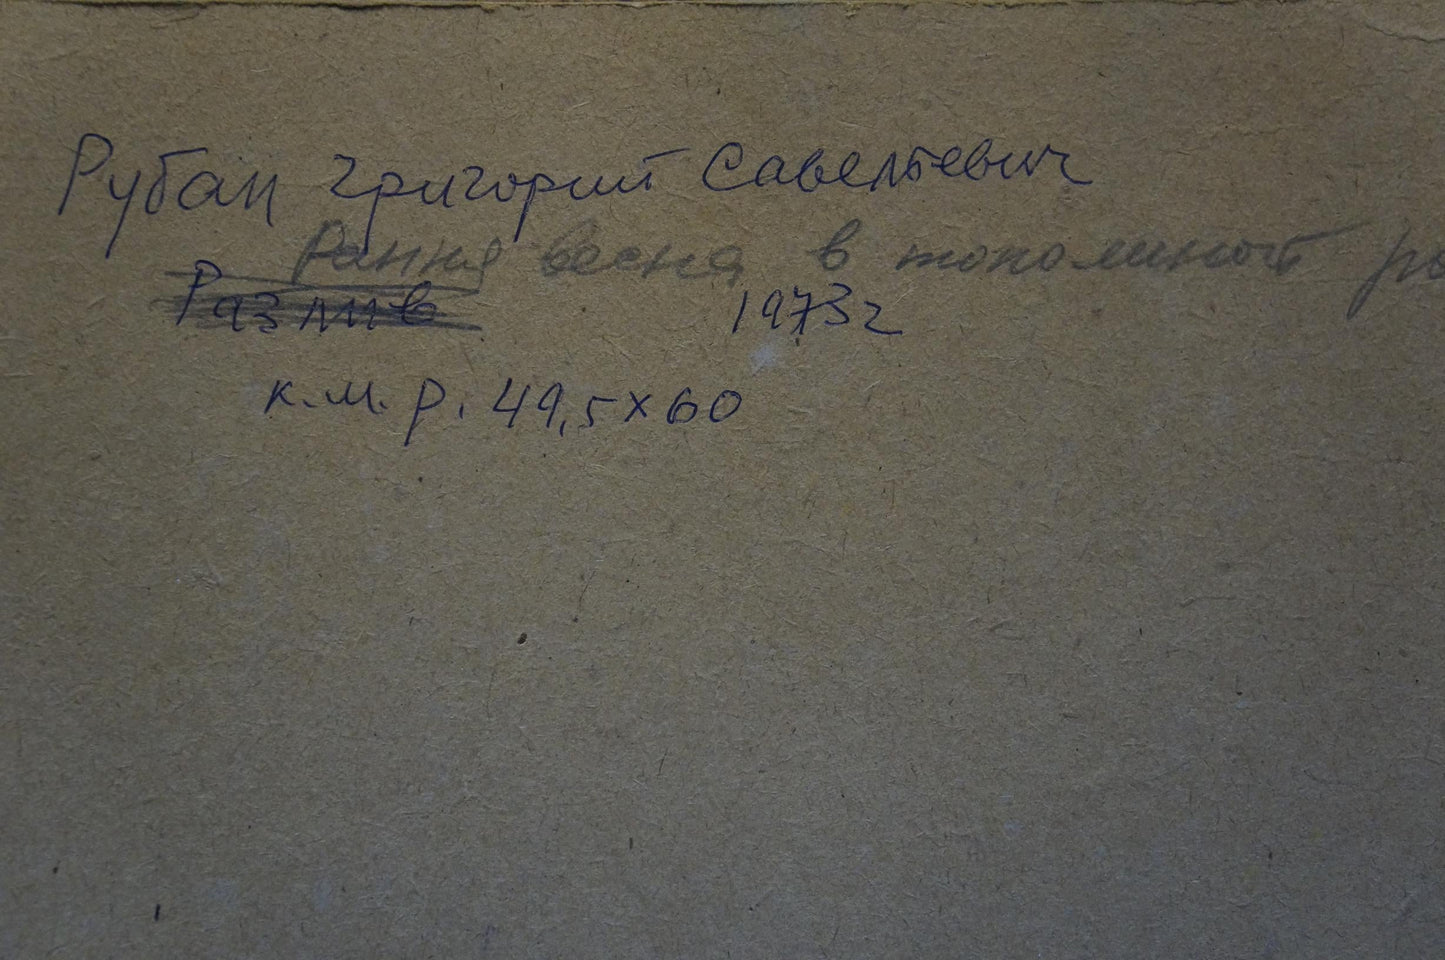 Рубан Григорий Савельевич
Ранняя весна в тополиной
Разлив 1973г
к.м. р. 49,5х60